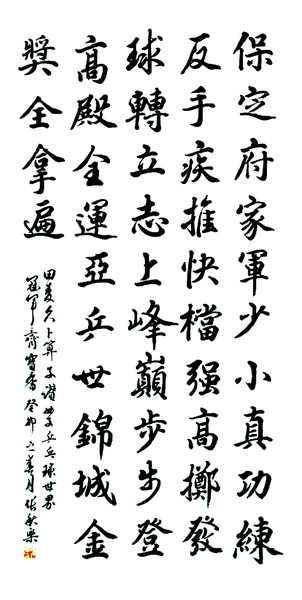 保定府家軍少小真功練
反手疾推快檔强高擲發
球轉立志上峰巔步步登
高殿全運亞乒世錦城金
獎全拿遍
田麦久卜算子讚乒乓球世界
冠軍齊寶香癸卯之春月張